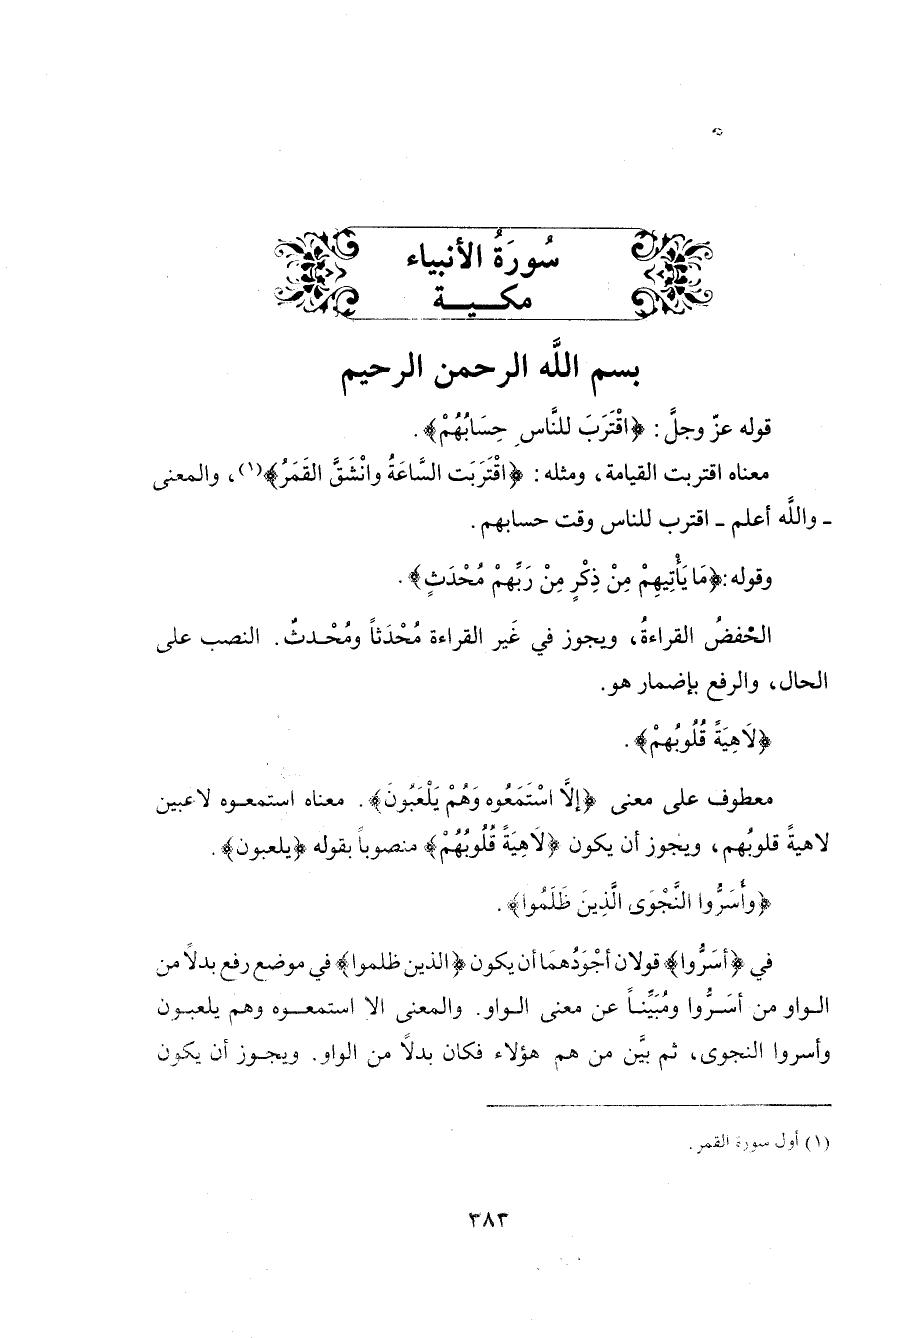 سُورَةُ الأنبياء
مكـــيـــة
بسم اللَّه الرحمن الرحيم
قوله عزّ وجلَّ: ﴿اقْتَرَبَ للنَّاسِ حِسَابُهُمْ﴾.
معناه اقتربت القيامة، ومثله: ﴿اقْتَرَبَت السَّاعَةُ وانْشَقَّ القَمَرُ﴾(١)، والمعنى
ـ واللَّه أعلم ـ اقترب للناس وقت حسابهم.
وقوله:﴿مَا يَأْتِيهِمْ مِنْ ذِكْرٍ مِنْ رَبِّهِمْ مُحْدَثٍ﴾.
الخفضُ القراءةُ، ويجوز في غَير القراءة مُحْدَثاً ومُحْـدثٌ. النصب على
الحال، والرفع بإضمار هو.
﴿لَاهِيَةً قُلُوبُهمْ﴾.
معطوف على معنى ﴿إلَّا اسْتَمَعُوه وَهُمْ يَلْعَبُونَ﴾. معناه استمعـوه لاعبين
لاهيةً قلوبُهم، ويجوز أن يكون ﴿لَاهِيَةً قُلُوبُهُمْ﴾ منصوباً بقوله ﴿يلعبون﴾.
﴿وأَسَرُّوا النَّجْوَى الَّذِينَ ظَلَمُوا﴾.
في ﴿أسَرُّوا﴾ قولان أجْوَدُهمَا أن يكون ﴿الذين ظلموا﴾ في موضع رفع بدلاً من
الـواو من أسَـرُّوا ومُبَيِّنـاً عن معنى الـواو. والمعنى الا استمعـــوه وهم يلعبـون
وأسروا النجوى، ثم بيَّن من هم هؤلاء فكان بدلاً من الواو. ويجـوز أن يكون
(١) أول سورة القمر.
٣٨٣